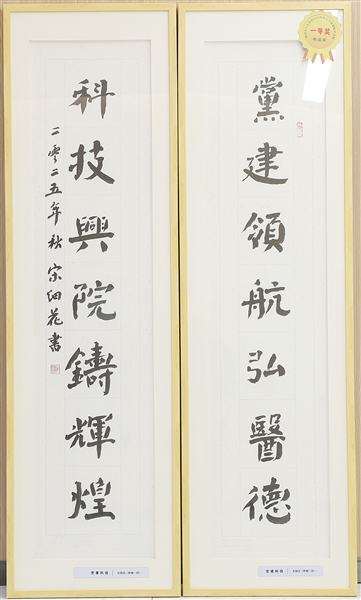 黨建領航弘醫德
科技興院鑄輝煌
二零二五年秋 宗細花書
一等奖